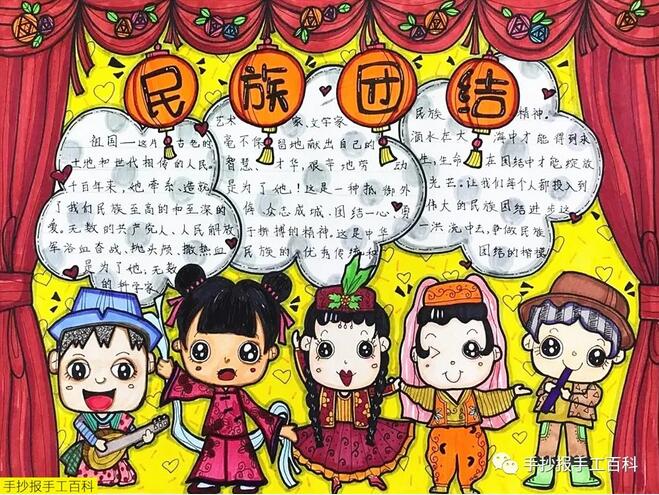 民族团结
祖国——这片古色的
土地和世代相传的人民。
千百年来,她牵系、造就
了我们民族至高的和至深的
爱。无数的共产党人、人民解放
军浴血奋战、抛头颅、撒热血
是为了她;无数
的科学家
艺术家、文学家
毫不保留地献出自己的
智慧、才华、艰辛地劳动
是为了她!这是一种抵御外
侮、众志成城、团结一心、勇
于拼搏的精神。这是中华
民族的优秀传统和
民族精神。
滴水在大海中才能得到永
生,生命在团结中才能绽放
光芒。让我们每个人都投入到
伟大的民族团结进步这
一洪流中去,争做民族
团结的楷模
手抄报手工百科
手抄报手工百科